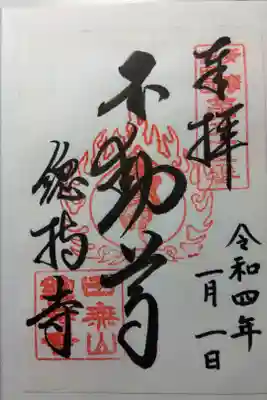 奉拝
令和四年
一月一日
不動尊
總持寺